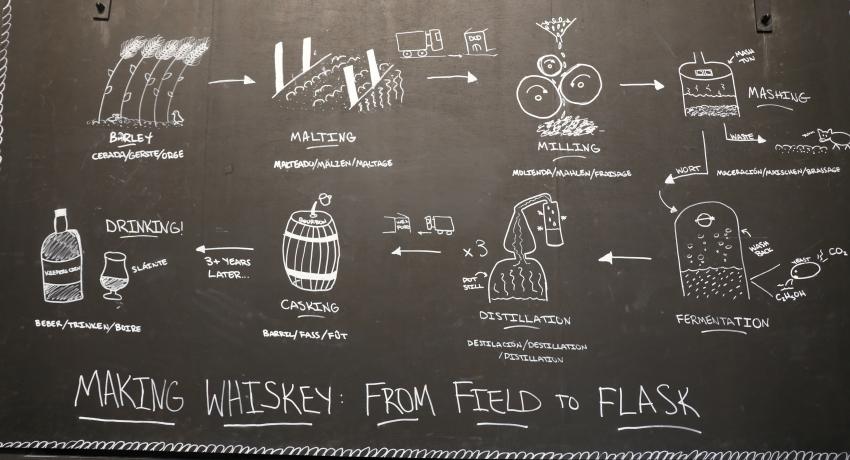 BARLEY
CEBADA/GERSTE/ORGE
MALTING
MALTEADO/MÄLZEN/MALTAGE
MILLING
MOLIENDA/MAHLEN/FRAISAGE
MASH
TUN
MASHING
WASTE
WORT
MACERACIÓN/MAISCHEN/BRASSAGE
WASH
BACK
YEAST
CO₂
C₂H₅OH
FERMENTATION
x3
POT
STILL
DISTILLATION
DESTILACIÓN/DESTILLATION
/DISTILLATION
BOURBON
CASKING
BARRIL/FASS/FÛT
3+ YEARS
LATER...
DRINKING!
SLÁINTE
BEBER/TRINKEN/BOIRE
MAKING WHISKEY: FROM FIELD TO FLASK